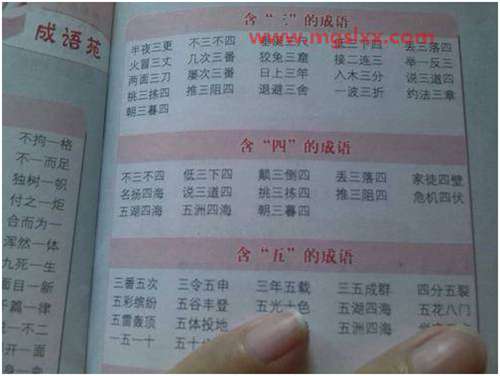 成语苑
不拘一格
不一而足
独树一帜
付之一炬
合而为一
浑然一体
九死一生
面目一新
篇一律
一不二
开一面
身一命
www.mgslxx.com
含“三”的成语
半夜三更 不三不四 低三下四 丢三落四
火冒三丈 几次三番 狡兔三窟 接二连三 举一反三
两面三刀 屡次三番 日上三竿 入木三分 说三道四
挑三拣四 推三阻四 退避三舍 一波三折 约法三章
朝三暮四
含“四”的成语
不三不四 低三下四 颠三倒四 丢三落四 家徒四壁
名扬四海 说三道四 挑三拣四 推三阻四 危机四伏
五湖四海 五洲四海 朝三暮四
含“五”的成语
三番五次 三令五申 三年五载 三五成群 四分五裂
五彩缤纷 五谷丰登 五光十色 五湖四海 五花八门
五雷轰顶 五体投地 五洲四海
一五一十 五十